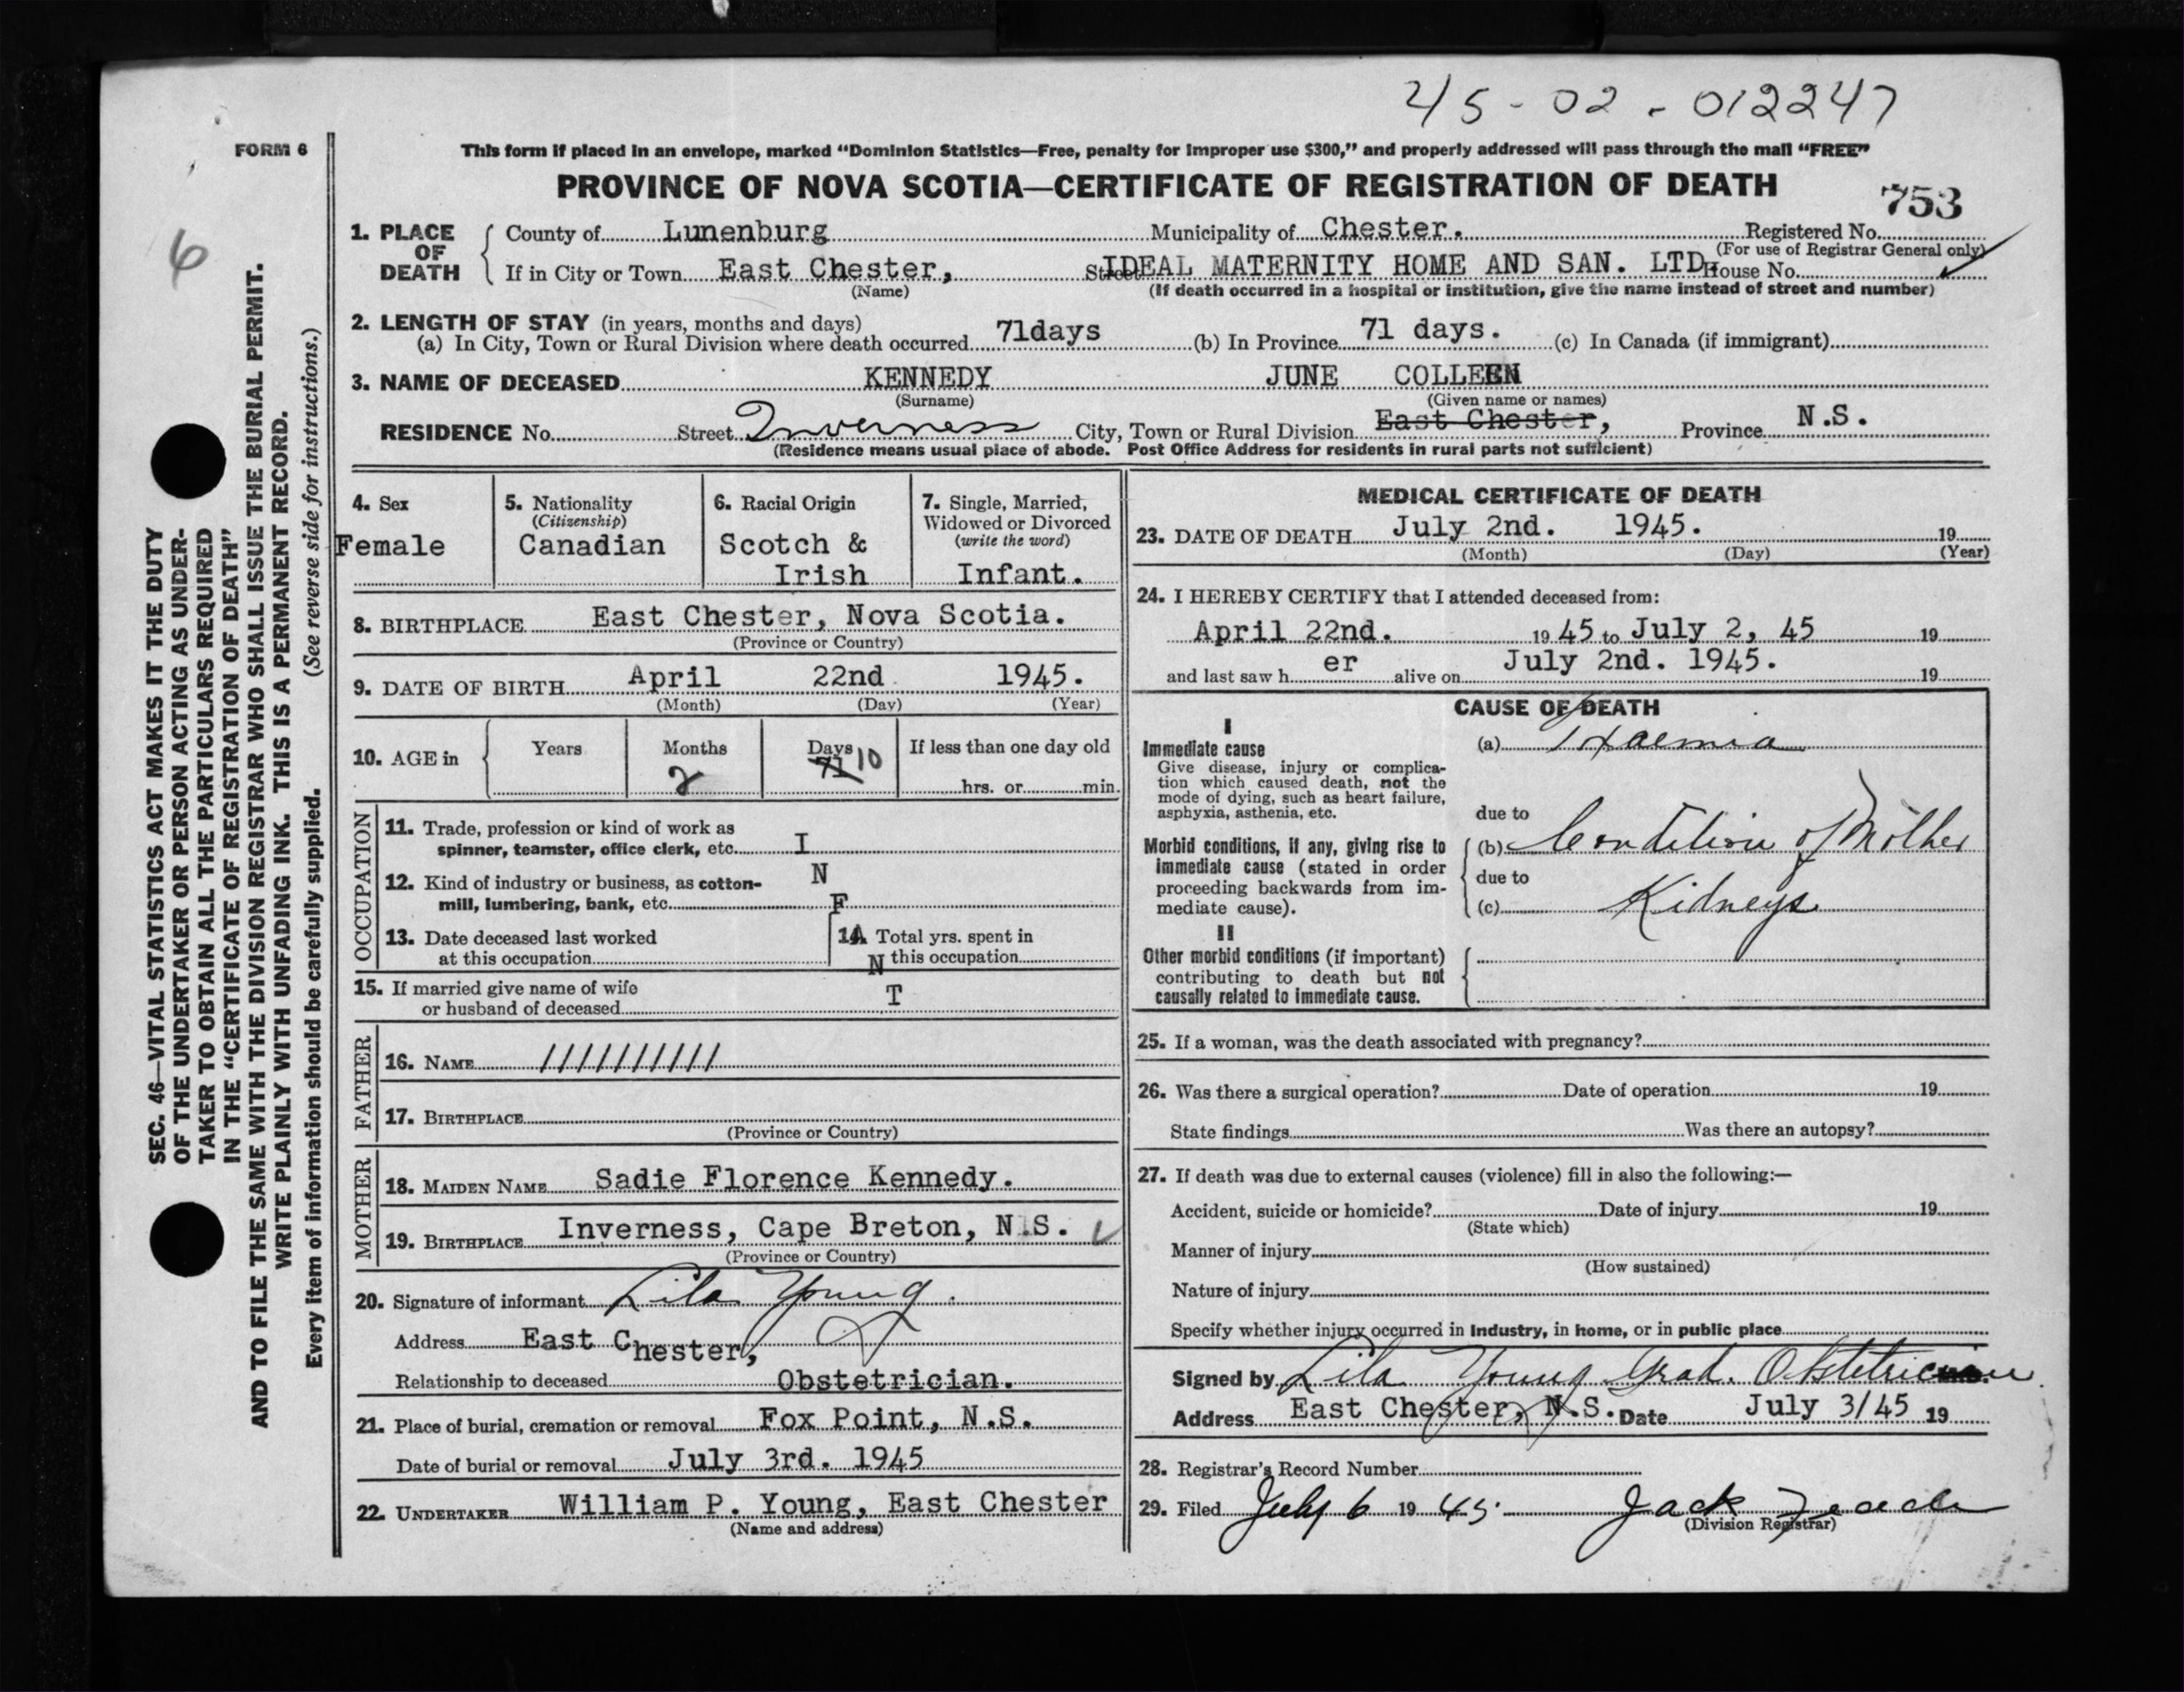 45-02-012247
FORM 6
This form if placed in an envelope, marked "Dominion Statistics—Free, penalty for improper use $300," and properly addressed will pass through the mail "FREE"
PROVINCE OF NOVA SCOTIA—CERTIFICATE OF REGISTRATION OF DEATH
753
6
SEC. 46—VITAL STATISTICS ACT MAKES IT THE DUTY
OF THE UNDERTAKER OR PERSON ACTING AS UNDER-
TAKER TO OBTAIN ALL THE PARTICULARS REQUIRED
IN THE "CERTIFICATE OF REGISTRATION OF DEATH"
AND TO FILE THE SAME WITH THE DIVISION REGISTRAR WHO SHALL ISSUE THE BURIAL PERMIT.
WRITE PLAINLY WITH UNFADING INK. THIS IS A PERMANENT RECORD.
Every item of information should be carefully supplied. (See reverse side for instructions.)
1. PLACE OF DEATH
County of Lunenburg Municipality of Chester. Registered No.
(For use of Registrar General only)
If in City or Town East Chester, Street IDEAL MATERNITY HOME AND SAN. LTD House No.
(Name) (If death occurred in a hospital or institution, give the name instead of street and number)
2. LENGTH OF STAY (in years, months and days)
(a) In City, Town or Rural Division where death occurred 71days (b) In Province 71 days. (c) In Canada (if immigrant)
3. NAME OF DECEASED KENNEDY JUNE COLLEEN
(Surname) (Given name or names)
RESIDENCE No. Street Inverness City, Town or Rural Division East Chester, Province N.S.
(Residence means usual place of abode. Post Office Address for residents in rural parts not sufficient)
4. Sex
Female
5. Nationality
(Citizenship)
Canadian
6. Racial Origin
Scotch &
Irish
7. Single, Married,
Widowed or Divorced
(write the word)
Infant.
8. BIRTHPLACE East Chester, Nova Scotia.
(Province or Country)
9. DATE OF BIRTH April 22nd 1945.
(Month) (Day) (Year)
10. AGE in
Years Months Days If less than one day old
2 71 10 hrs. or min.
OCCUPATION
11. Trade, profession or kind of work as
spinner, teamster, office clerk, etc. I
12. Kind of industry or business, as cotton- N
mill, lumbering, bank, etc. F
13. Date deceased last worked
at this occupation
14. A Total yrs. spent in
N this occupation
15. If married give name of wife T
or husband of deceased
FATHER
16. NAME ///////////
17. BIRTHPLACE
(Province or Country)
MOTHER
18. MAIDEN NAME Sadie Florence Kennedy.
19. BIRTHPLACE Inverness, Cape Breton, N.S.
(Province or Country)
20. Signature of informant Lila Young
Address East Chester,
Relationship to deceased Obstetrician.
21. Place of burial, cremation or removal Fox Point, N.S.
Date of burial or removal July 3rd. 1945
22. UNDERTAKER William P. Young, East Chester
(Name and address)
MEDICAL CERTIFICATE OF DEATH
23. DATE OF DEATH July 2nd. 1945. 19
(Month) (Day) (Year)
24. I HEREBY CERTIFY that I attended deceased from:
April 22nd. 19 45 to July 2, 45 19
and last saw h er alive on July 2nd. 1945. 19
CAUSE OF DEATH
I
Immediate cause
Give disease, injury or complica-
tion which caused death, not the
mode of dying, such as heart failure,
asphyxia, asthenia, etc.
(a)
due to
Morbid conditions, if any, giving rise to
immediate cause (stated in order
proceeding backwards from im-
mediate cause).
(b) Condition of Mother
due to
(c) Kidneys
II
Other morbid conditions (if important)
contributing to death but not
causally related to immediate cause.
25. If a woman, was the death associated with pregnancy?
26. Was there a surgical operation? Date of operation 19
State findings Was there an autopsy?
27. If death was due to external causes (violence) fill in also the following:—
Accident, suicide or homicide? Date of injury 19
(State which)
Manner of injury
(How sustained)
Nature of injury
Specify whether injury occurred in Industry, in home, or in public place
Signed by Lila Young Grad. Obstetrician
Address East Chester, N.S. Date July 3/45 19
28. Registrar's Record Number
29. Filed July 6 19 45. Jack
(Division Registrar)